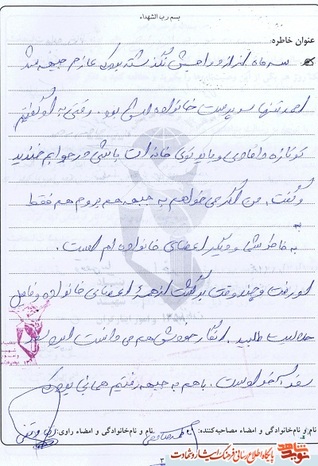 بسم رب الشهداء
عنوان خاطره:
سه ماه از ازدواجش نگذشته بود که عازم جبهه شد
احمد تنها سرپرست خانواده اش بود. وقتی به او گفتم
تو تازه دامادی و باید توی خانه ات باشی در جوابم خندید
و گفت: من اگر می خواهم به جبهه هم بروم هم فقط
به خاطر شما و دیگر اعضای خانواده ام است.
او رفت و چند وقت برگشت از همه اعضای خانواده و فامیل
حلالیت طلبید. انگار خودش هم می دانست این
سفر آخر اوست. با هم به جبهه رفتیم
نام و نام خانوادگی و امضاء مصاحبه کننده:
نام و نام خانوادگی و امضاء راوی:
پایگاه اطلاع رسانی فرهنگ ایثار و شهادت